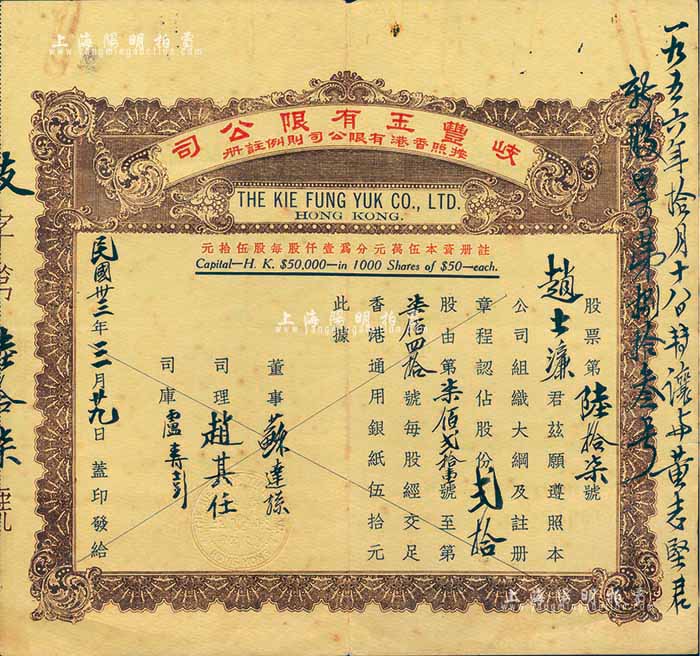 上海陽明拍賣
www.yangmingauction.com
一九五六年拾月十八日轉讓与黃志堅君
新股票第捌拾叁号
司公限有玉豐岐
册註例則司公限有港香照按
THE KIE FUNG YUK CO., LTD.
HONG KONG.
元拾伍股每股仟壹為分元萬伍本資册註
Capital—H. K. $50,000—in 1000 Shares of $50—each.
股票第陸拾柒號
趙士濂君茲願遵照本
公司組織大綱及註册
章程認佔股份弍拾
股由第柒佰弍拾壹號至第
柒佰四拾號每股經交足
香港通用銀紙伍拾元
此據
董事蘇達孫
司理趙其任
司庫盧
民國卅三年三月廿九日蓋印發給
字第陸拾柒
上海陽明拍賣
上海陽明拍賣